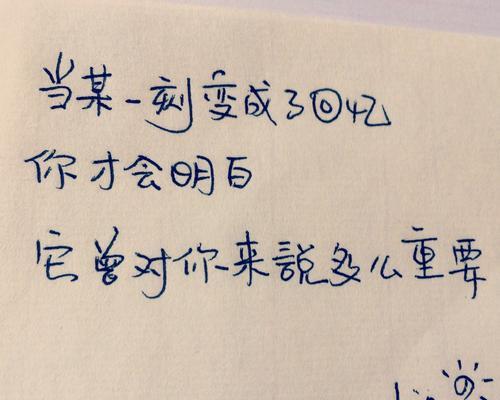 当某一刻变成了回忆
你才会明白
它曾对你来説多么重要